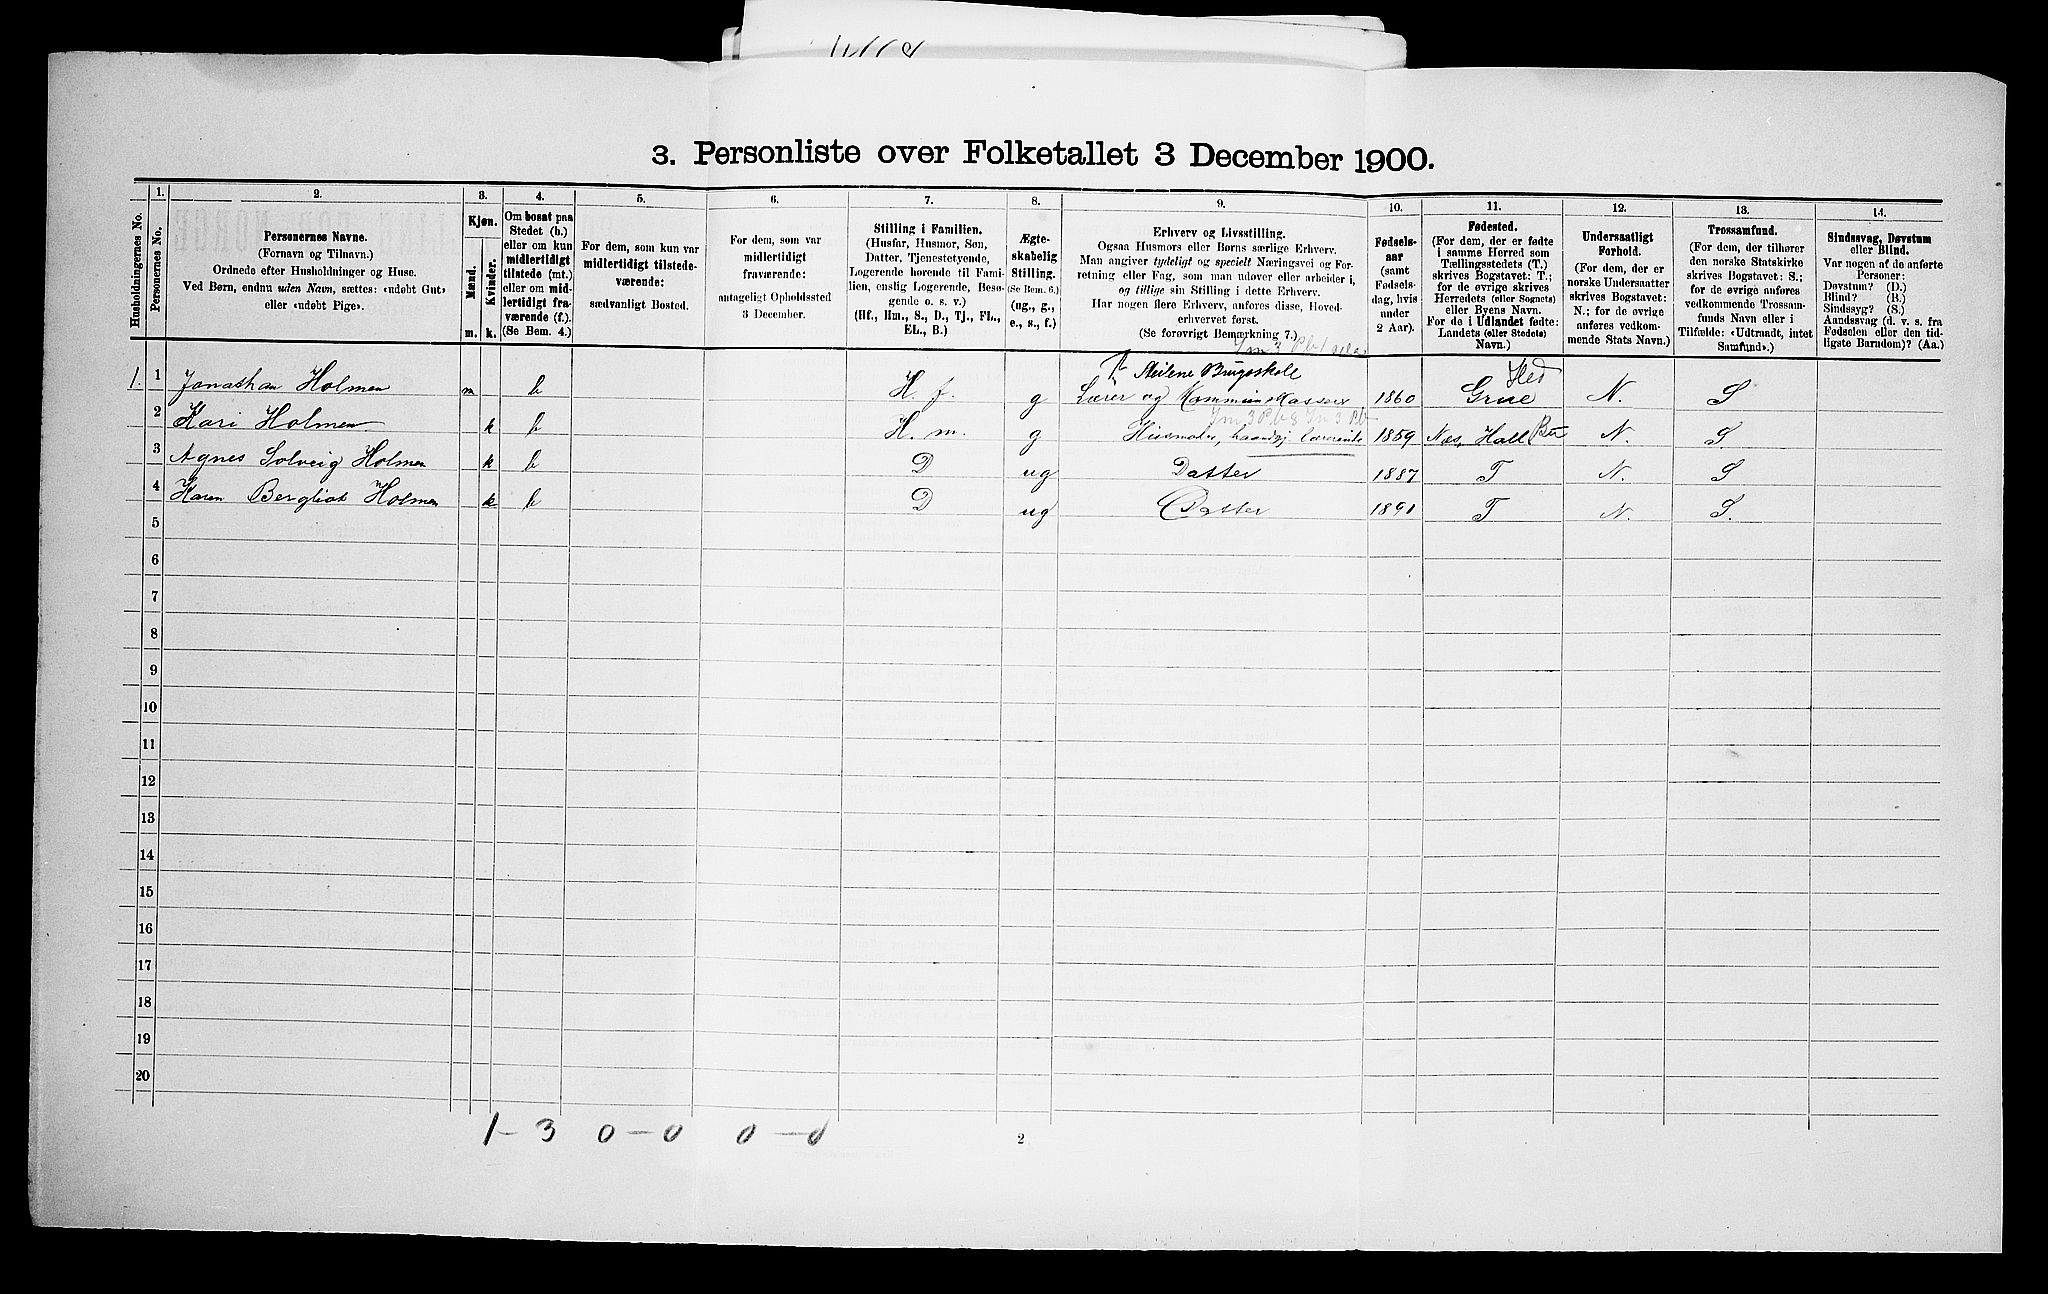 3. Personliste over Folketallet 3 December 1900.
Husholdningernes No.
1.
Personernes No.
2.
Personernes Navne.
(Fornavn og Tilnavn.)
Ordnede efter Husholdninger og Huse.
Ved Børn, endnu uden Navn, sættes: «udøbt Gut»
eller «udøbt Pige».
3.
Kjøn.
Mænd.
Kvinder.
m.
k.
4.
Om bosat paa
Stedet (b.)
eller om kun
midlertidigt
tilstede (mt.)
eller om mid-
lertidigt fra-
værende (f.).
(Se Bem. 4.)
5.
For dem, som kun var
midlertidigt tilstede-
værende:
sædvanligt Bosted.
6.
For dem, som var
midlertidigt
fraværende:
antageligt Opholdssted
3 December.
7.
Stilling i Familien.
(Husfar, Husmor, Søn,
Datter, Tjenestetyende,
Logerende hørende til Fami-
lien, enslig Logerende, Besø-
gende o. s. v.)
(Hf., Hm., S., D., Tj., FL.,
EL., B.)
8.
Ægte-
skabelig
Stilling.
(Se Bem. 6.)
(ug., g.,
e., s., f.)
9.
Erhverv og Livsstilling.
Ogsaa Husmors eller Børns særlige Erhverv.
Man angiver tydeligt og specielt Næringsvei og For-
retning eller Fag, som man udøver eller arbeider i,
og tillige sin Stilling i dette Erhverv.
Har nogen flere Erhverv, anføres disse, Hoved-
erhvervet først.
(Se forøvrigt Bemerkning 7.)
10.
Fødsels-
aar
(samt
Fødsels-
dag, hvis
under
2 Aar).
11.
Fødested.
(For dem, der er fødte
i samme Herred som
Tællingsstedets (T.)
skrives Bogstavet: T;
for de øvrige skrives
Herredets (eller Sognets)
eller Byens Navn.
For de i Udlandet fødte:
Landets (eller Stedets)
Navn.)
12.
Undersaatligt
Forhold.
(For dem, der er
norske Undersaatter
skrives Bogstavet:
N.; for de øvrige
anføres vedkom-
mende Stats Navn.)
13.
Trossamfund.
(For dem, der tilhører
den norske Statskirke
skrives Bogstavet: S.;
for de øvrige anføres
vedkommende Trossam-
funds Navn eller i
Tilfælde: «Udtraadt, intet
Samfund».)
14.
Sindssvag, Døvstum
eller Blind.
Var nogen af de anførte
Personer:
Døvstum? (D.)
Blind? (B.)
Sindssyg? (S.)
Aandssvag (d. v. s. fra
Fødselen eller den tid-
ligste Barndom)? (Aa.)
Brugsskole Hed
1. 1 Jonathan Holmen m b H. f. g Lærer og Kommunekasserer 1860 Grue N. S
2 Kari Holmen k b H. m. g Husmoder, haandgj. lærerinde 1859 Nes, Hall N. S.
3 Agnes Solveig Holmen k b D ug Datter 1887 T N. S
4 Karen Bergliot Holmen k b D ug Datter 1891 T N. S.
5
6
7
8
9
10
11
12
13
14
15
16
17
18
19
20
1 - 3 0 - 0 0 - 0
2